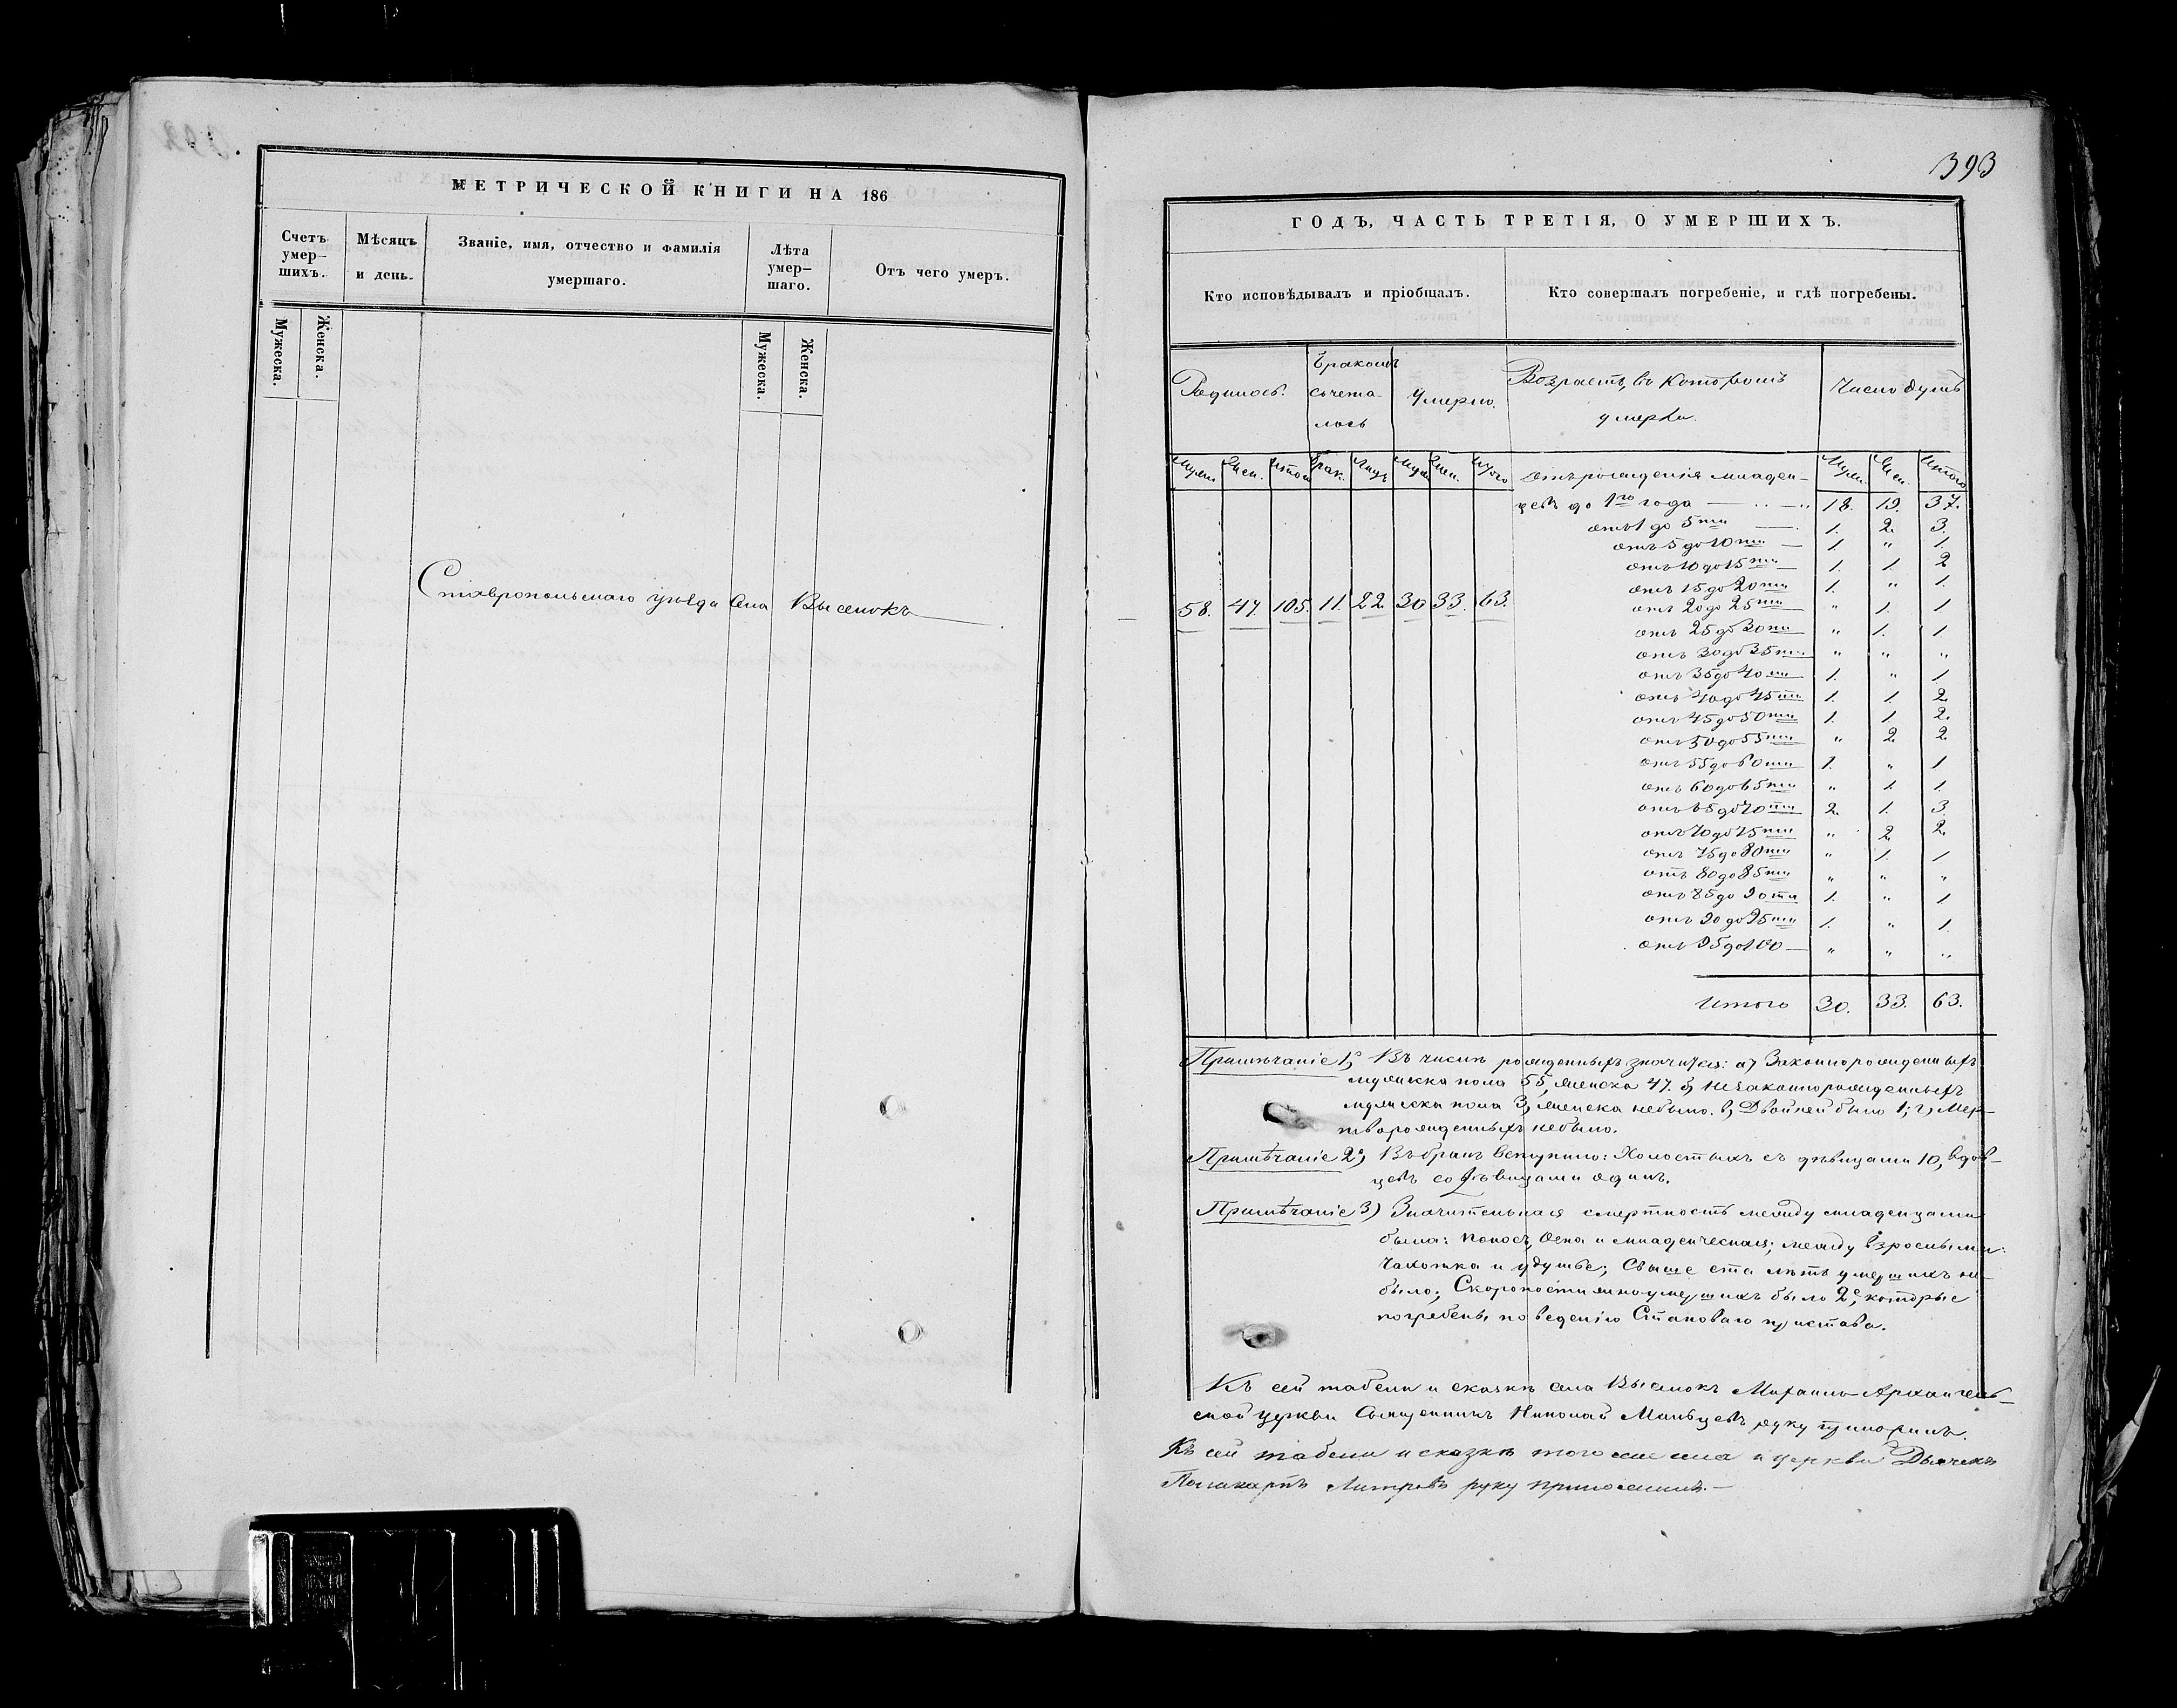 МЕТРИЧЕСКОЙ КНИГИ НА 186
Счетъ умер-шихъ.
Мѣсяцъ и день.
Званіе, имя, отчество и фамилія умершаго.
Лѣта умер-шаго.
Отъ чего умеръ.
Мужеска.
Женска.
Мужеска.
Женска.
Ставропольскаго уѣзда Села Выселокъ
393
ГОДЪ, ЧАСТЬ ТРЕТІЯ, О УМЕРШИХЪ.
Кто исповѣдывалъ и пріобщалъ.
Кто совершалъ погребеніе, и гдѣ погребены.
Родилось.
Бракомъ сочета-лось
Умерло.
Возрастъ, въ которомъ умерли.
Число душъ
Муж. Жен. Итого Брак. Лицъ Муж. Жен. Итого
Муж. Жен. Итого
58. 47. 105. 11. 22. 30 33. 63.
Отъ рожденія младен-
цевъ до 1го года 18. 19. 37.
отъ 1 до 5ти 1. 2. 3.
отъ 5 до 10ти 1. " 1.
отъ 10 до 15ти 1. 1. 2
отъ 15 до 20ти 1. " 1.
отъ 20 до 25ти " 1. 1
отъ 25 до 30ти " 1. 1
отъ 30 до 35ти " " "
отъ 35 до 40ти 1. " 1
отъ 40 до 45ти 1. 1. 2.
отъ 45 до 50ти 1. 1 2.
отъ 50 до 55ти " 2. 2.
отъ 55 до 60ти 1. " 1
отъ 60 до 65ти " 1. 1.
отъ 65 до 70ти 2. 1. 3.
отъ 70 до 75ти " 2. 2.
отъ 75 до 80ти " 1. 1
отъ 80 до 85ти " " "
отъ 85 до 90ти 1. " 1
отъ 90 до 95ти 1. " 1.
отъ 95 до 100 " " "
Итого 30. 33. 63.
Примѣчаніе 1, Въ числѣ рожденныхъ значится: а, Законнорожденныхъ
мужеска пола 55, женска 47. б, незаконнорожденныхъ
мужеска пола 3, женска небыло. в, Двойней было 1; г, Мер-
творожденныхъ небыло.
Примѣчаніе 2е, Въ бракъ вступило: Холостыхъ съ дѣвицами 10, вдов-
цевъ со дѣвицами одинъ.
Примѣчаніе 3) Значительная смертность между младенцами
была: поносъ, Оспа и младенческая; между взрослыми:
Чахотка и удушье; Свыше ста лѣтъ умершихъ не-
было; Скоропостижноумершихъ было 2е, которые
погребены по веденію Становаго пристава.
Къ сей табели и сказкѣ села Выселокъ Михаило-Архангель-
ской церкви Священникъ Николай Мильцевъ руку приложилъ.
Къ сей табели и сказкѣ того же села и церкви Дьячекъ
Поликарпъ руку приложилъ.